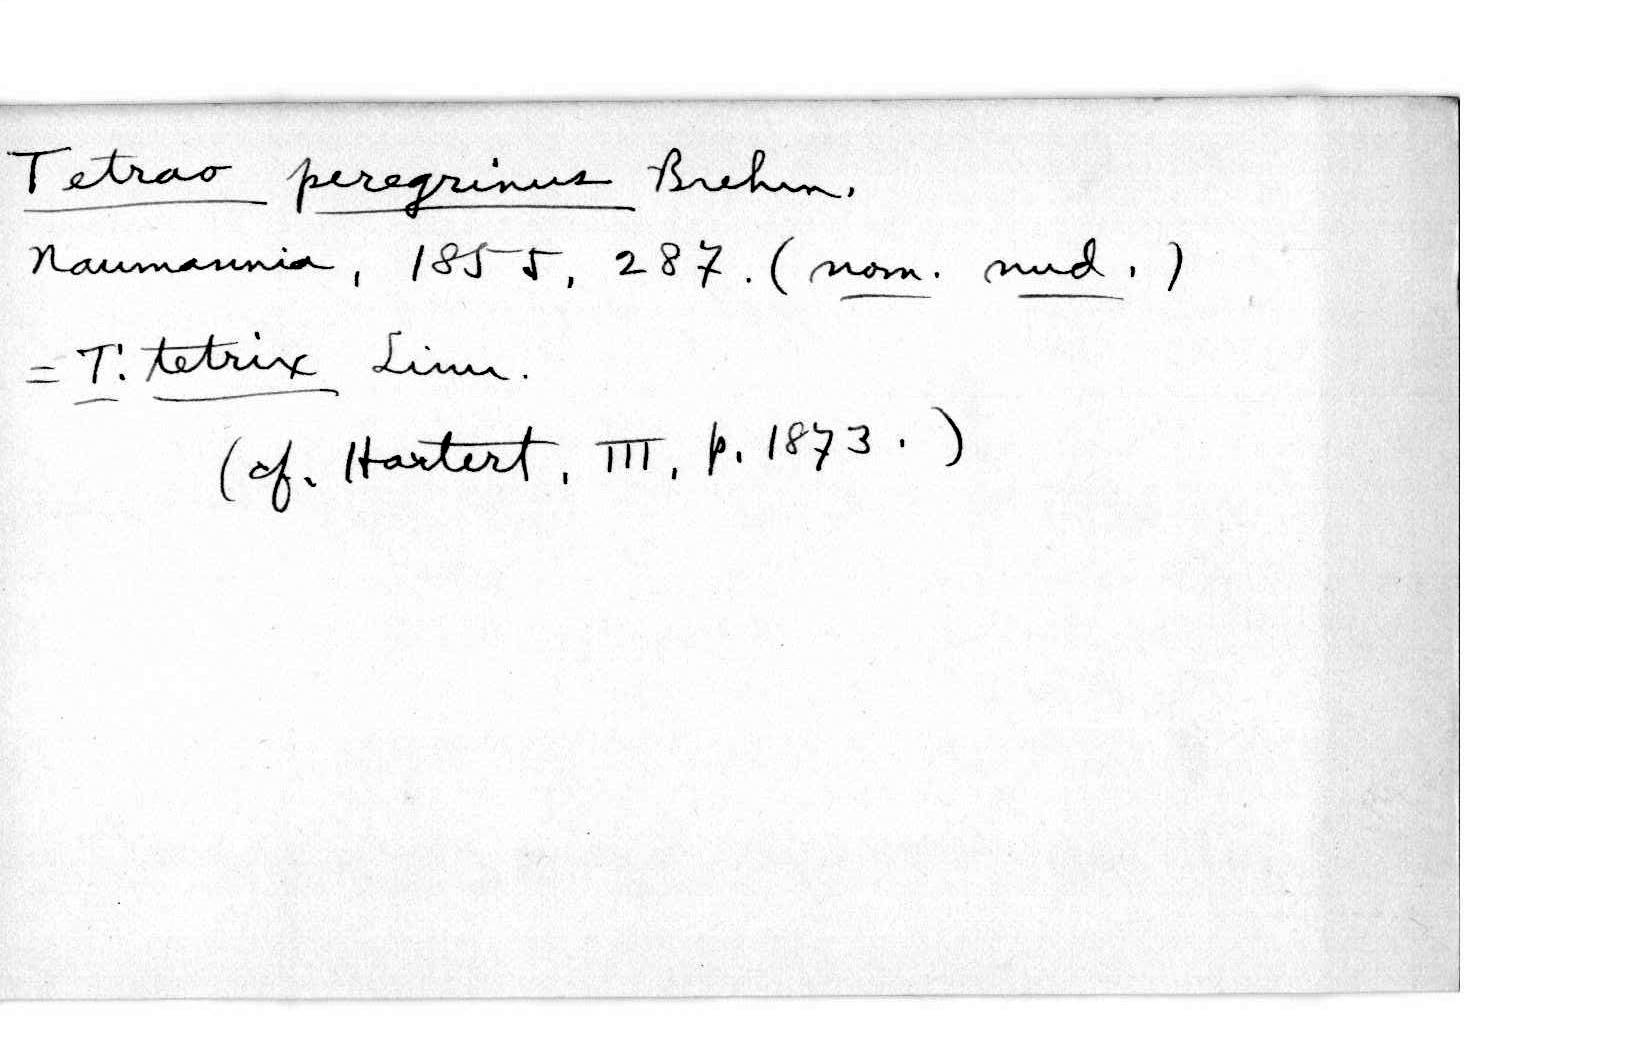 Tetrao peregrinus Brehm.
Naumannia, 1855, 287. (nom. nud.)
= T. tetrix Linn.
(cf. Hartert, III, p. 1873.)